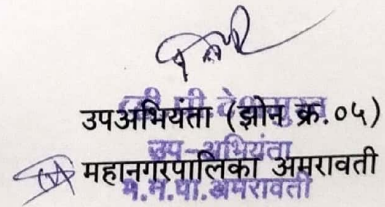 उपअभियंता (झोन क्र.०५)
उप-अभियंता
महानगरपालिका अमरावती
म.न.पा.अमरावती